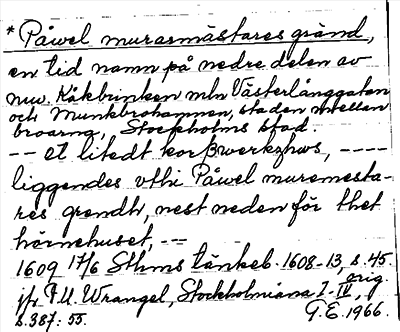 * Påwel muraemästares gränd,
en tid namn på nedre delen av
nuv. Kåkbrinken mln Västerlånggatan
och Munkbrohamnen, staden mellan
broarna, Stockholms stad.
-- et litedt korßwerkzhws, ----
liggendes vthi Påwel muremesta-
res grendh, nest neden för thet
hörnehuset, --
1609 17/6 Sthms tänkeb. 1608-13, s. 45.
jfr F.U. Wrangel, Stockholmiana I-IV, orig.
s. 387: 55. G.E. 1966.